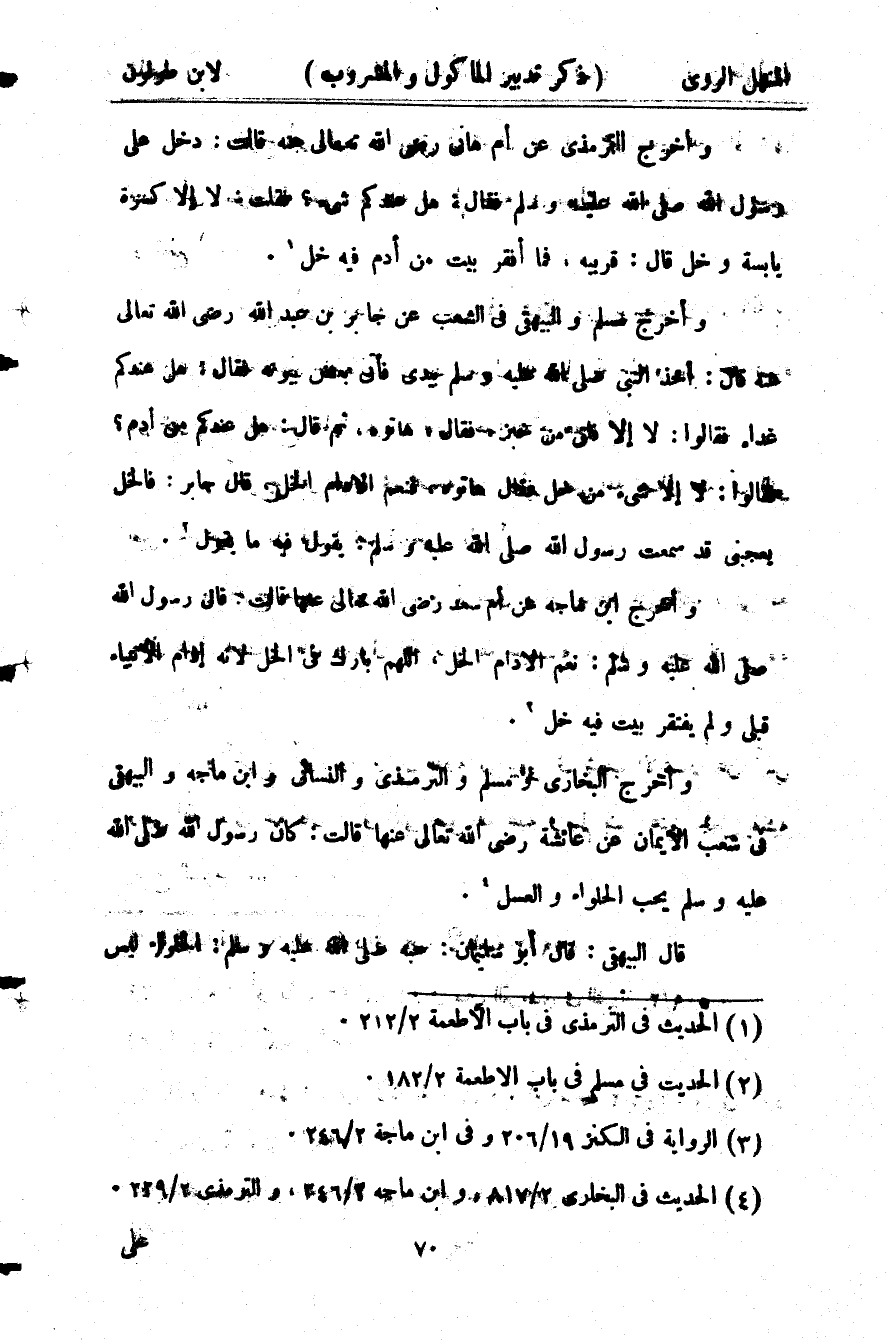 المنهل الروى (ذكر تدبير الماكول و المشروب) لابن طولون
و أخرج الترمذى عن أم هانى رضى الله تعالى عنه قالت: دخل على
رسول الله صلى الله عليه و سلم فقال: هل عندكم شىء؟ فقلت: لا إلا كسرة
يابسة و خل قال: قربيه، فما أفقر بيت من أدم فيه خل ١ .
و أخرج مسلم و البيهقى فى الشعب عن جابر بن عبد الله رضى الله تعالى
عنه قال: أخذ النبى صلى الله عليه و سلم بيدى فأتى بعض بيوته فقال: هل عندكم
غداء فقالوا: لا إلا فلق من خبز، فقال، هاتوه، ثم قال: هل عندكم من أدم؟
فقالوا: لا إلا شىء من خل فقال هاتوه، فنعم الادام الخل، قال جابر: فالخل
يعجبنى قد سمعت رسول الله صلى الله عليه و سلم: يقول فيه ما يقول ٢ .
و أخرج ابن ماجه عن أم سعد رضى الله تعالى عنها قالت: قال رسول الله
صلى الله عليه و سلم: نعم الادام الخل، اللهم بارك فى الخل لانه إدام الأنبياء
قبلى و لم يفتقر بيت فيه خل ٣ .
و أخرج البخارى و مسلم و الترمذى و النسائى و ابن ماجه و البيهقى
فى شعب الأيمان عن عائشة رضى الله تعالى عنها قالت: كان رسول الله صلى الله
عليه و سلم يحب الحلواء و العسل ٤ .
قال البيهقى: قال أبو سليمان: حبه صلى الله عليه و سلم: الحلواء ليس
(١) الحديث فى الترمذى فى باب الأطعمة ٢/٢١٢ .
(٢) الحديت في مسلم فى باب الاطعمة ٢/١٨٢ .
(٣) الرواية فى الكنز ١٩/٢٠٦ و فى ابن ماجة ٢/٢٤٦ .
(٤) الحديث فى البخارى ٢/٨١٧، و ابن ماجه ٢/٢٤٦، و الترمذى ٢/٢٢٩ .
٧٠ على